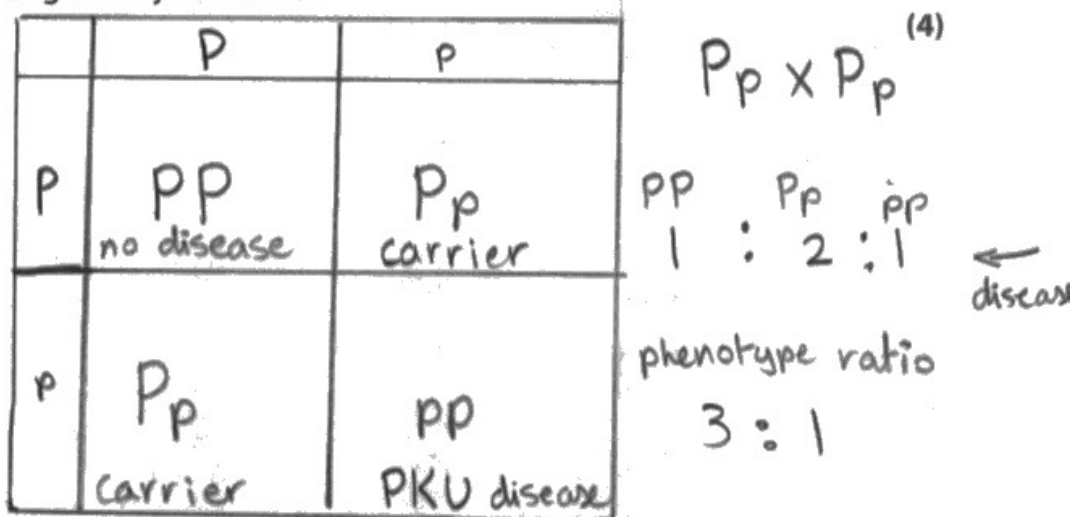 (4)
P p
P PP Pp
no disease carrier
p Pp pp
carrier PKU disease
Pp x Pp
PP Pp pp
1 : 2 : 1 ←
disease
phenotype ratio
3 : 1